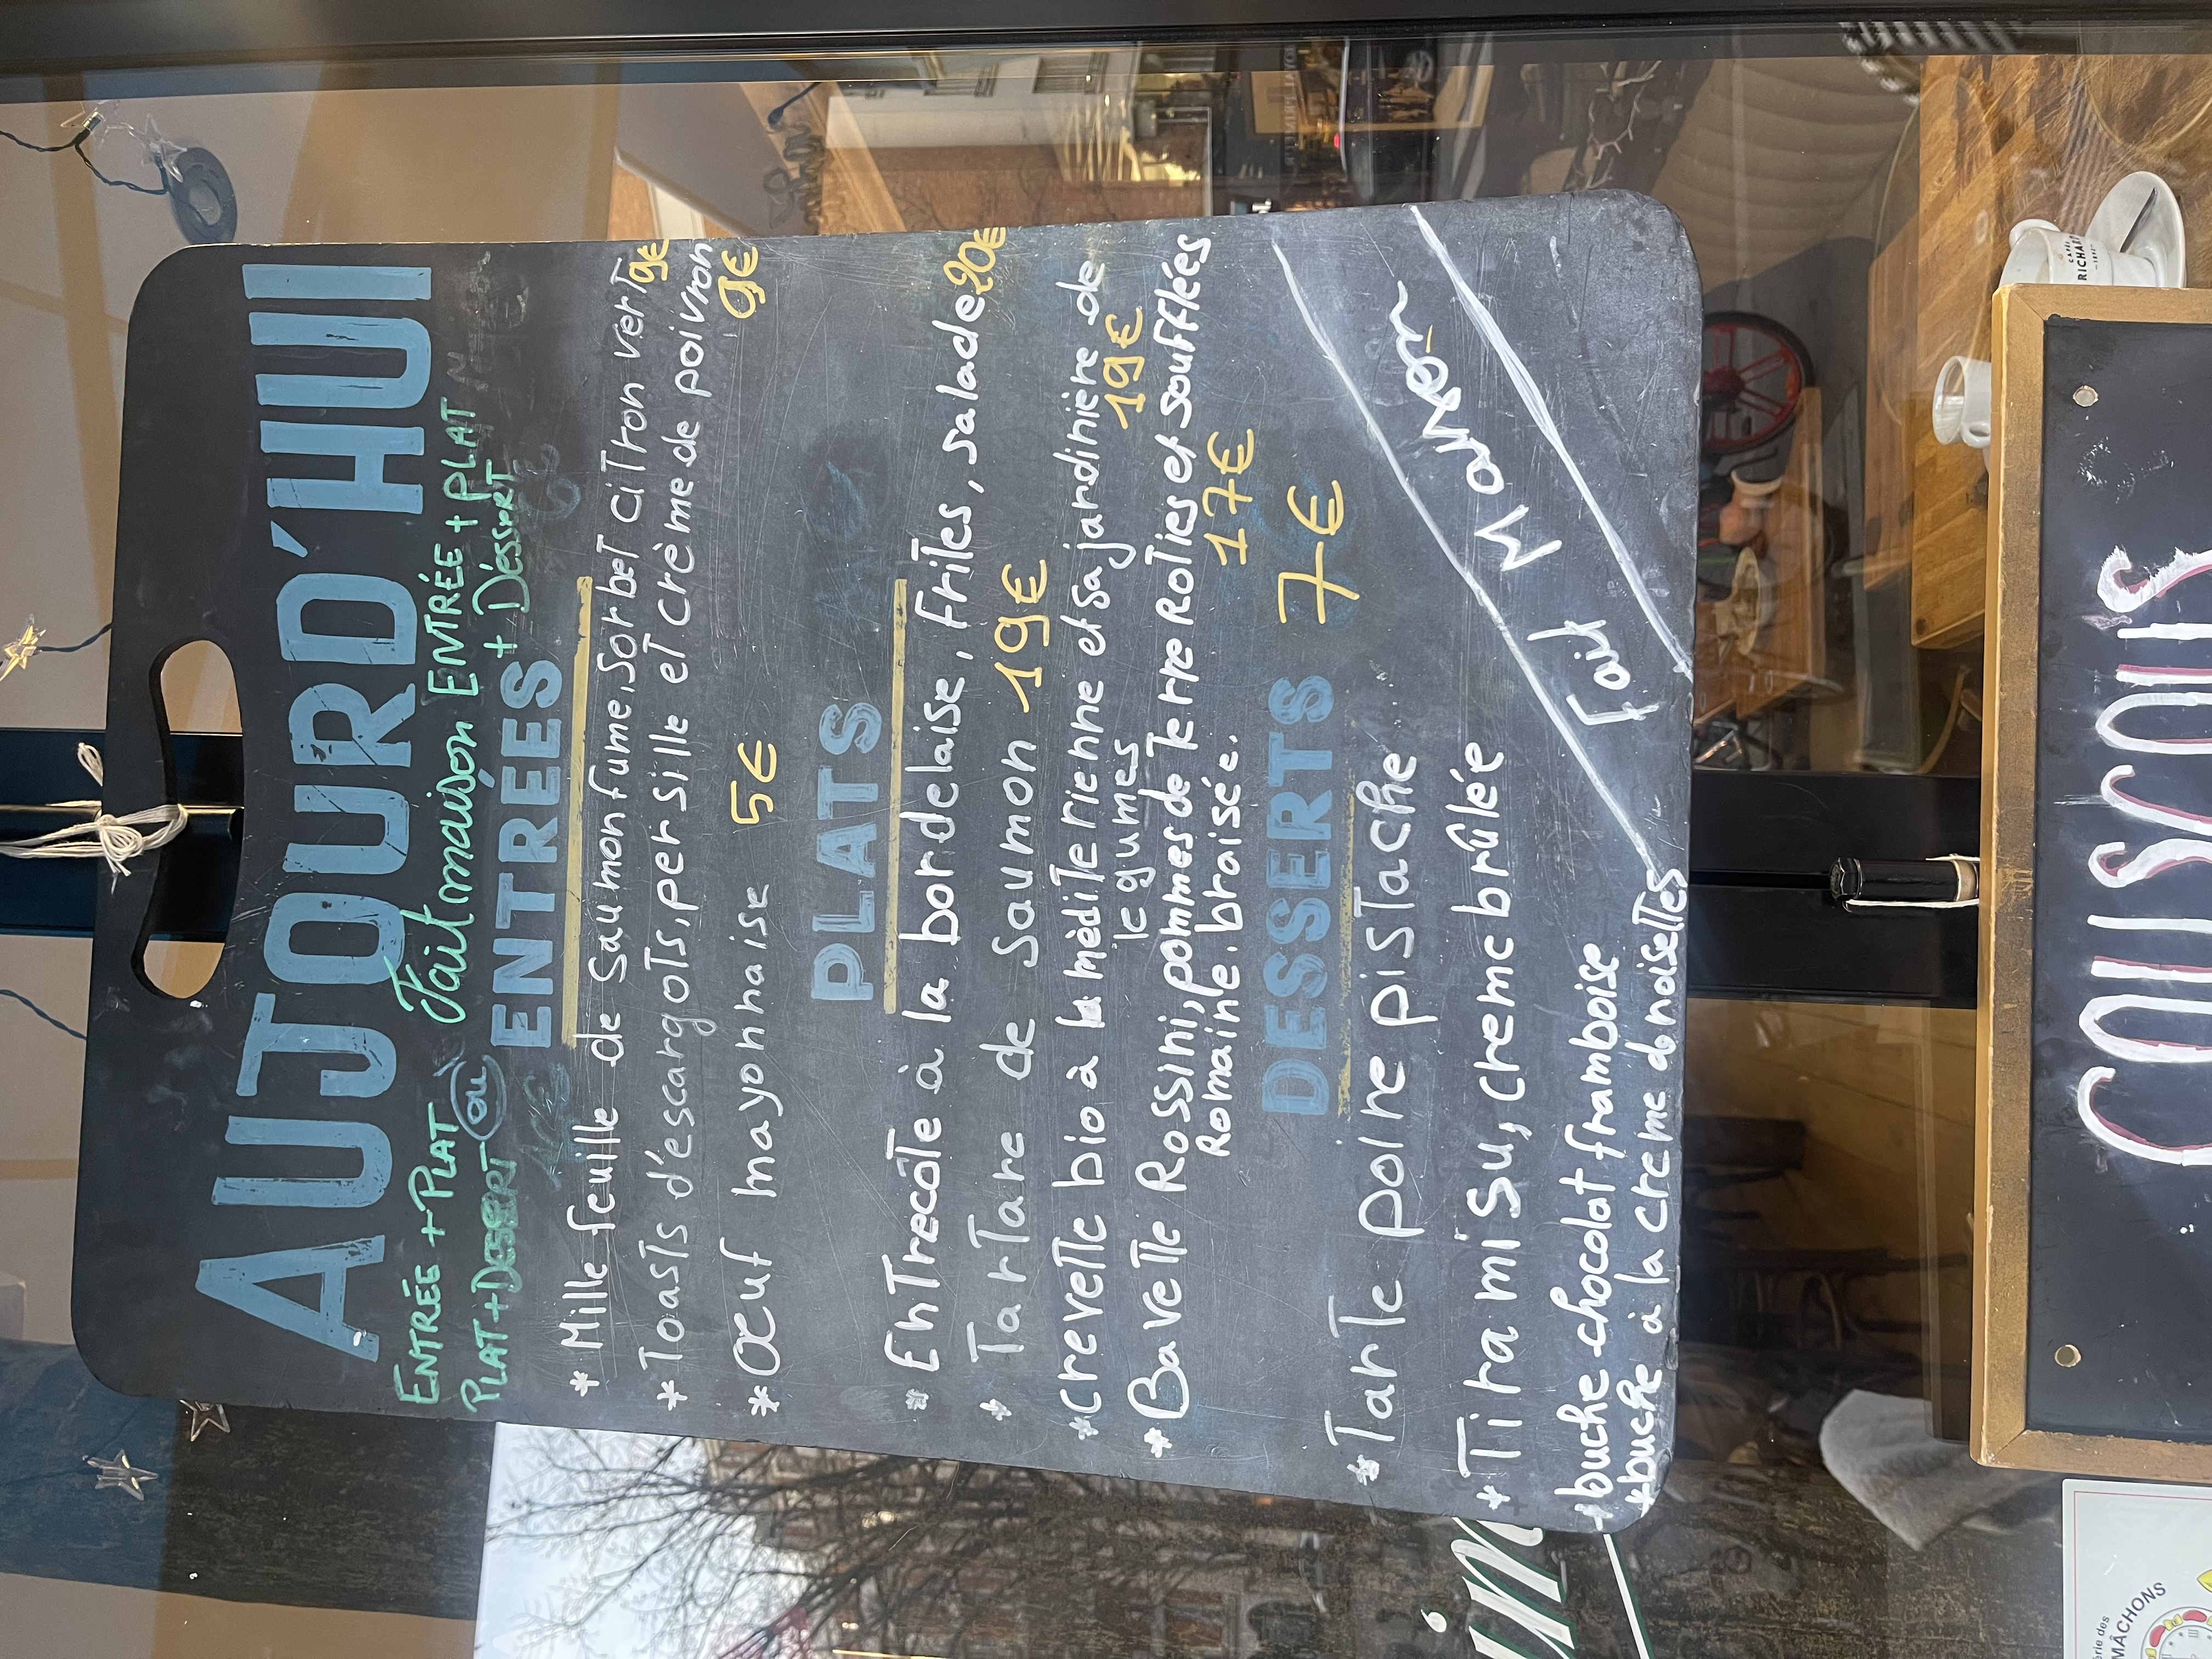 AUJOURD'HUI
ENTRÉE + PLAT
fait maison
ENTRÉE + PLAT
PLAT + DESSERT
ou
+ Déssert
ENTRÉES
* Mille feuille de saumon fume, Sorbet ciTron verT 9€
* ToasTs d'escargoTs, persille eT crème de poivron
9€
* Œuf mayonnaise 5€
PLATS
* EnTrecôTe à la bordelaise, friTes, salade 20€
* TarTare de Saumon 19€
* creveTTe bio à la médiTerienne et sa jardinière de
legumes 19€
* BaveTTe Rossini, pommes de Terre RoTies et soufflées
Romaine braisée. 17€
DESSERTS 7€
* TarTe poire pisTache
* Tiramisu, creme brûlée
Fait Maison
* buche chocolat framboise
* buche à la creme d noiseTTes
COUSCOUS
CAFÉS
RICHARD
MÂCHONS